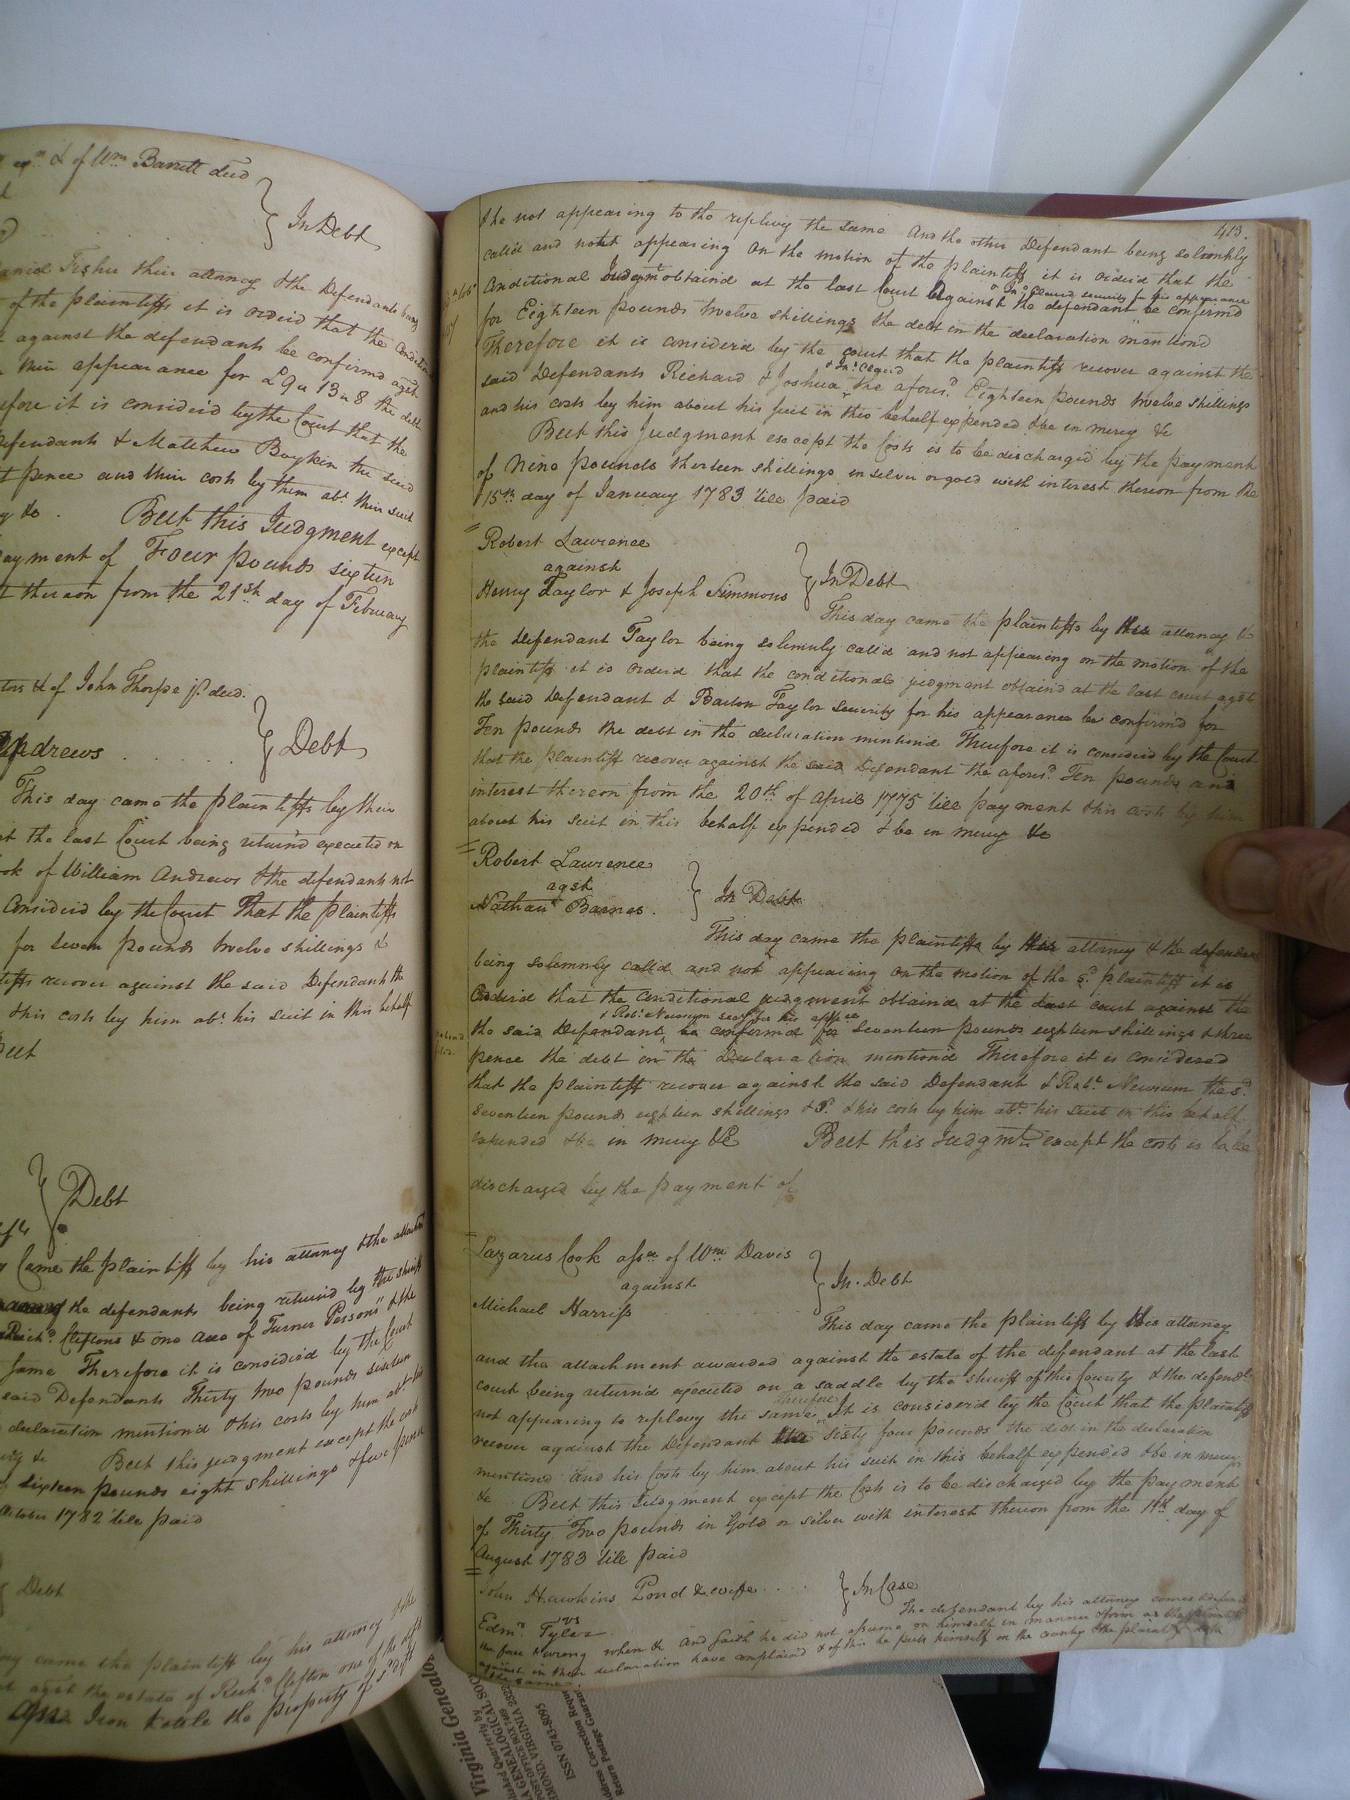 & of Wm Barrett decd
In Debt
Daniel Fisher their attorney & the Defendants being
of the plaintiffs it is ordered that the Condition
against the defendants be confirmd agst
their appearance for £9 " 13 " 8 the debt
efore it is considerd by the Court that the
Defendants & Matthew Boykin the said
t pence and their costs by them abt. their suit
y &c. But this Judgment except
ayment of Four pounds sixteen
t thereon from the 21st day of February
tors &c of John Thorpe jr. decd.
Andrews
Debt
This day came the plaintiffs by their
at the last Court being returnd executed on
ok of William Andrews & the defendant not
considerd by the Court That the plaintiffs
for Seven pounds twelve shillings &
tiffs recover against the said Defendant the
& his costs by him abt. his suit in this behalf
But
Debt
Came the plaintiff by his attorney & the attachmt
the defendants being returnd by the sheriff
Richd. Cliftons & one also of Turner Persons & the
same Therefore it is considerd by the Court
said Defendants Thirty two pounds sixteen
declaration mentiond & his costs by him abt his
&c But this judgment except the costs
sixteen pounds eight shillings & five pence
October 1782 till paid
Debt
came the plaintiff by his attorney & the
agst the estate of Richd. Clifton one of the
Iron kettle the property of sd
413.
& he not appearing to the replevy the same And the other Defendant being solemnly
calld and not appearing On the motion of the plaintiffs it is orderd that the
Conditional Judgmt obtaind at the last Court against the defendant be confirmd
& Jno. Clarud security for his appearance
for Eighteen pounds twelve shillings the debt in the declaration mentiond
Therefore it is considerd by the court that the plaintiffs recover against the
said Defendants Richard & Joshua the aforesd. Eighteen pounds twelve shillings
and his costs by him about his suit in this behalf expended & be in mercy &c
But this Judgment except the Costs is to be discharged by the payment
of Nine pounds thirteen shillings in silver or gold with interest thereon from the
15th day of January 1783 till paid
Robert Lawrence
against
Henry Taylor & Joseph Simmons
In Debt
This day came the plaintiffs by his attorney &
the Defendant Taylor being solemnly calld and not appearing on the motion of the
plaintiffs it is orderd that the conditional judgment obtaind at the last court agst
the said Defendant & Barton Taylor security for his appearance be confirmd for
Ten pounds the debt in the declaration mentiond Therefore it is considerd by the Court
that the plaintiff recover against the said Defendant the aforesd. Ten pounds and
interest thereon from the 20th of April 1775 till payment & his costs by him
about his suit in this behalf expended & be in mercy &c
Robert Lawrence
agst
Nathanl Barnes.
In Debt.
This day came the plaintiffs by his attorney & the defendant
being solemnly calld and not appearing On the motion of the sd. plaintiff it is
Orderd that the conditional judgment obtaind at the last court against the
& Robt. Newsum secy for his appce
the said Defendant be confirmd for Seventeen pounds eighteen shillings & three
pence the debt in the Declaration mentiond Therefore it is considered
that the plaintiff recover against the said Defendant & Robt. Newsum the sd.
Seventeen pounds eighteen shillings & 3d. & his costs by him abt. his suit in this behalf
expended & be in mercy &c But this Judgmt. except the costs is to be
discharged by the payment of
Lazarus Cook asse. of Wm Davis
against
Michael Harriss
In Debt
This day came the plaintiff by his attorney
and the attachment awarded against the estate of the defendant at the last
court being returnd executed on a saddle by the sheriff of this County & the defendt.
not appearing to replevy the same Therefore It is considerd by the Court that the plaintiff
recover against the Defendant sixty four pounds the debt in the declaration
mentiond and his Costs by him about his suit in this behalf expended & be in mercy
&c But this Judgment except the Costs is to be discharged by the payment
of Thirty Two pounds in Gold or silver with interest thereon from the 11th day of
August 1783 till paid
John Hawkins Pond & wife
vs
Edmd. Tyler
In Case
The defendant by his attorney comes & defends
the force & wrong when &c And saith he did not assume on himself in manner & form as the plaintiffs
against in their declaration have complaind & of this he puts himself on the country & the plaintiffs doth
the same
Virginia Genealog
Quarterly by
GENEALOGICAL SOC
POST OFFICE BOX
MOND, VIRGINIA
ISSN 0743-8095
Address Correction Reque
Return Postage Guarant